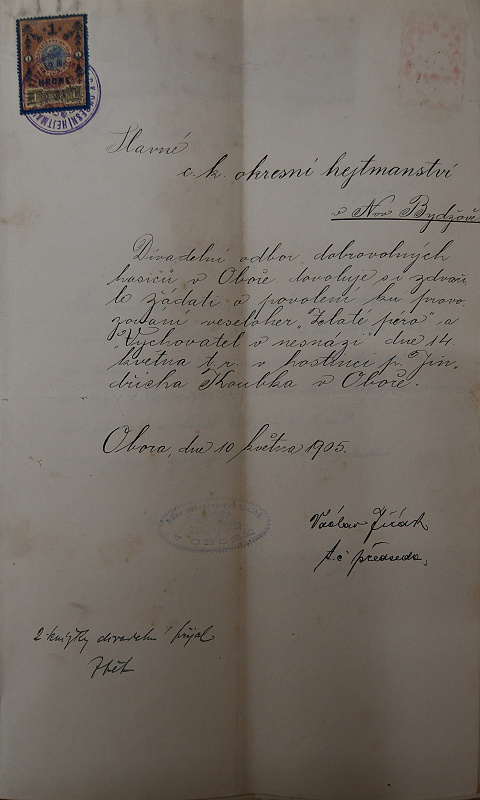 Slavné
c. k. okresní hejtmanství
v Nov Bydžově
Divadelní odbor dobrovolných
hasičů v Oboře dovoluje si zdvoři
le žádati o povolení ku provo„
zování veseloher „Zlaté péro“ a
„Vychovatel v nesnázi“ dne 14.
května t. r. v hostinci p. Jin„
dřicha Koubka v Oboře.
Obora, dne 10 května 1905.
Václav
t. č. předseda,
2 knížky divadelní přijal